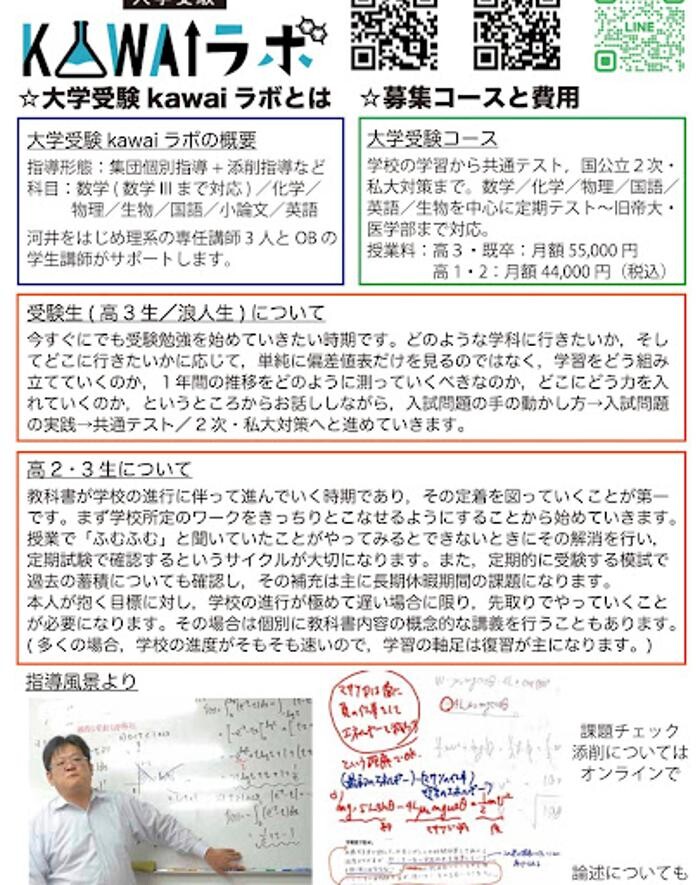 大学受験
KAWAIラボ
LINE
☆大学受験 kawai ラボとは
☆募集コースと費用
大学受験 kawai ラボの概要
指導形態：集団個別指導＋添削指導など
科目：数学 ( 数学 III まで対応 ) ／化学／
物理／生物／国語／小論文／英語
河井をはじめ理系の専任講師 3 人と OB の
学生講師がサポートします。
大学受験コース
学校の学習から共通テスト，国公立２次・
私大対策まで。数学／化学／物理／国語／
英語／生物を中心に定期テスト～旧帝大・
医学部まで対応。
授業料：高３・既卒：月額 55,000 円
高 1・2：月額 44,000 円（税込）
受験生 ( 高 3 生／浪人生 ) について
今すぐにでも受験勉強を始めていきたい時期です。どのような学科に行きたいか，そし
てどこに行きたいかに応じて，単純に偏差値表だけを見るのではなく，学習をどう組み
立てていくのか，１年間の推移をどのように測っていくべきなのか，どこにどう力を入
れていくのか，というところからお話ししながら，入試問題の手の動かし方→入試問題
の実践→共通テスト／２次・私大対策へと進めていきます。
高 2・3 生について
教科書が学校の進行に伴って進んでいく時期であり，その定着を図っていくことが第一
です。まず学校所定のワークをきっちりとこなせるようにすることから始めていきます。
授業で「ふむふむ」と聞いていたことがやってみるとできないときにその解消を行い，
定期試験で確認するというサイクルが大切になります。また，定期的に受験する模試で
過去の蓄積についても確認し，その補充は主に長期休暇期間の課題になります。
本人が抱く目標に対し，学校の進行が極めて遅い場合に限り，先取りでやっていくこと
が必要になります。その場合は個別に教科書内容の概念的な講義を行うこともあります。
( 多くの場合，学校の進度がそもそも速いので，学習の軸足は復習が主になります。)
指導風景より
課題チェック
添削については
オンラインで
論述についても